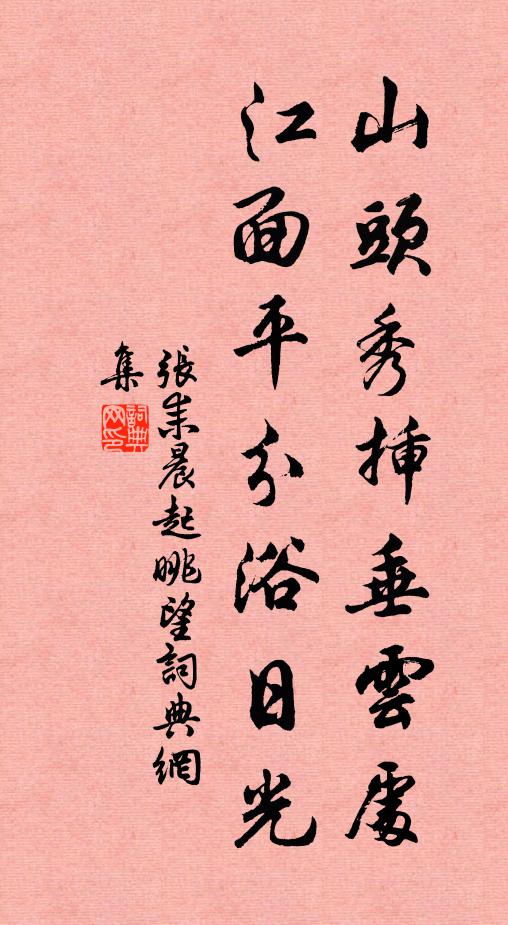 山頭秀挿垂雲處
江面平分浴日光
張耒晨起眺望詞典網
集
詞典网印